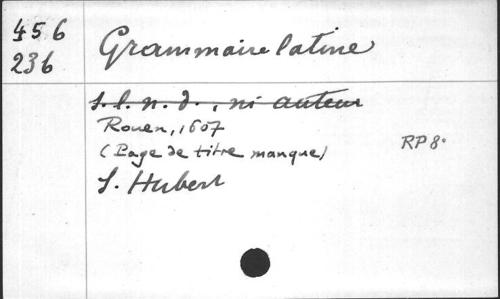 456
236
Grammaire latine
s. l. n. d., ni auteur
Rouen, 1607
(Page de titre manque)
RP 8°
S. Hubert